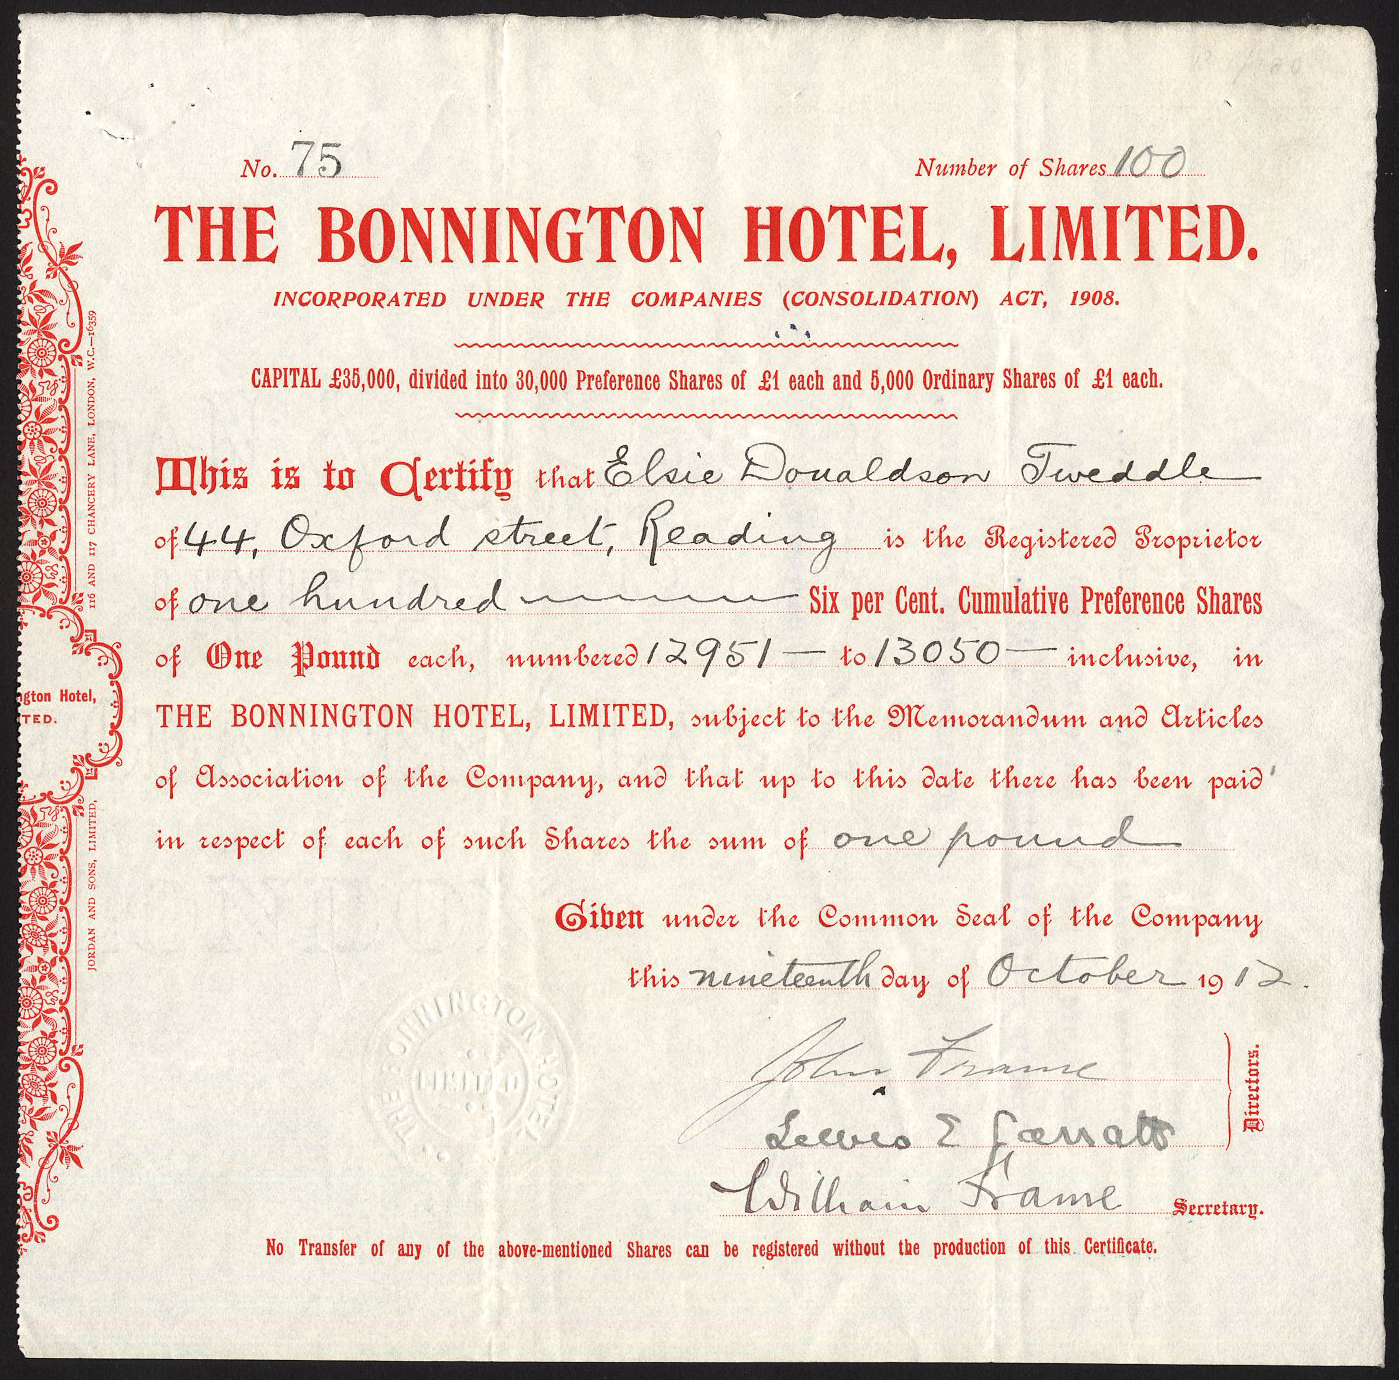 No. 75 Number of Shares 100
THE BONNINGTON HOTEL, LIMITED.
INCORPORATED UNDER THE COMPANIES (CONSOLIDATION) ACT, 1908.
CAPITAL £35,000, divided into 30,000 Preference Shares of £1 each and 5,000 Ordinary Shares of £1 each.
This is to Certify that Elsie Donaldson Tweddle
of 44, Oxford street, Reading is the Registered Proprietor
of one hundred Six per Cent. Cumulative Preference Shares
of One Pound each, numbered 12951 — to 13050 — inclusive, in
THE BONNINGTON HOTEL, LIMITED, subject to the Memorandum and Articles
of Association of the Company, and that up to this date there has been paid
in respect of each of such Shares the sum of one pound
Given under the Common Seal of the Company
this nineteenth day of October 1912.
John Frame
Lewis E Garratt
Directors.
William Frame Secretary.
No Transfer of any of the above-mentioned Shares can be registered without the production of this Certificate.
THE BONNINGTON HOTEL
LIMITED
ngton Hotel,
TED.
JORDAN AND SONS, LIMITED, 116 AND 117 CHANCERY LANE, LONDON, W.C.—16359